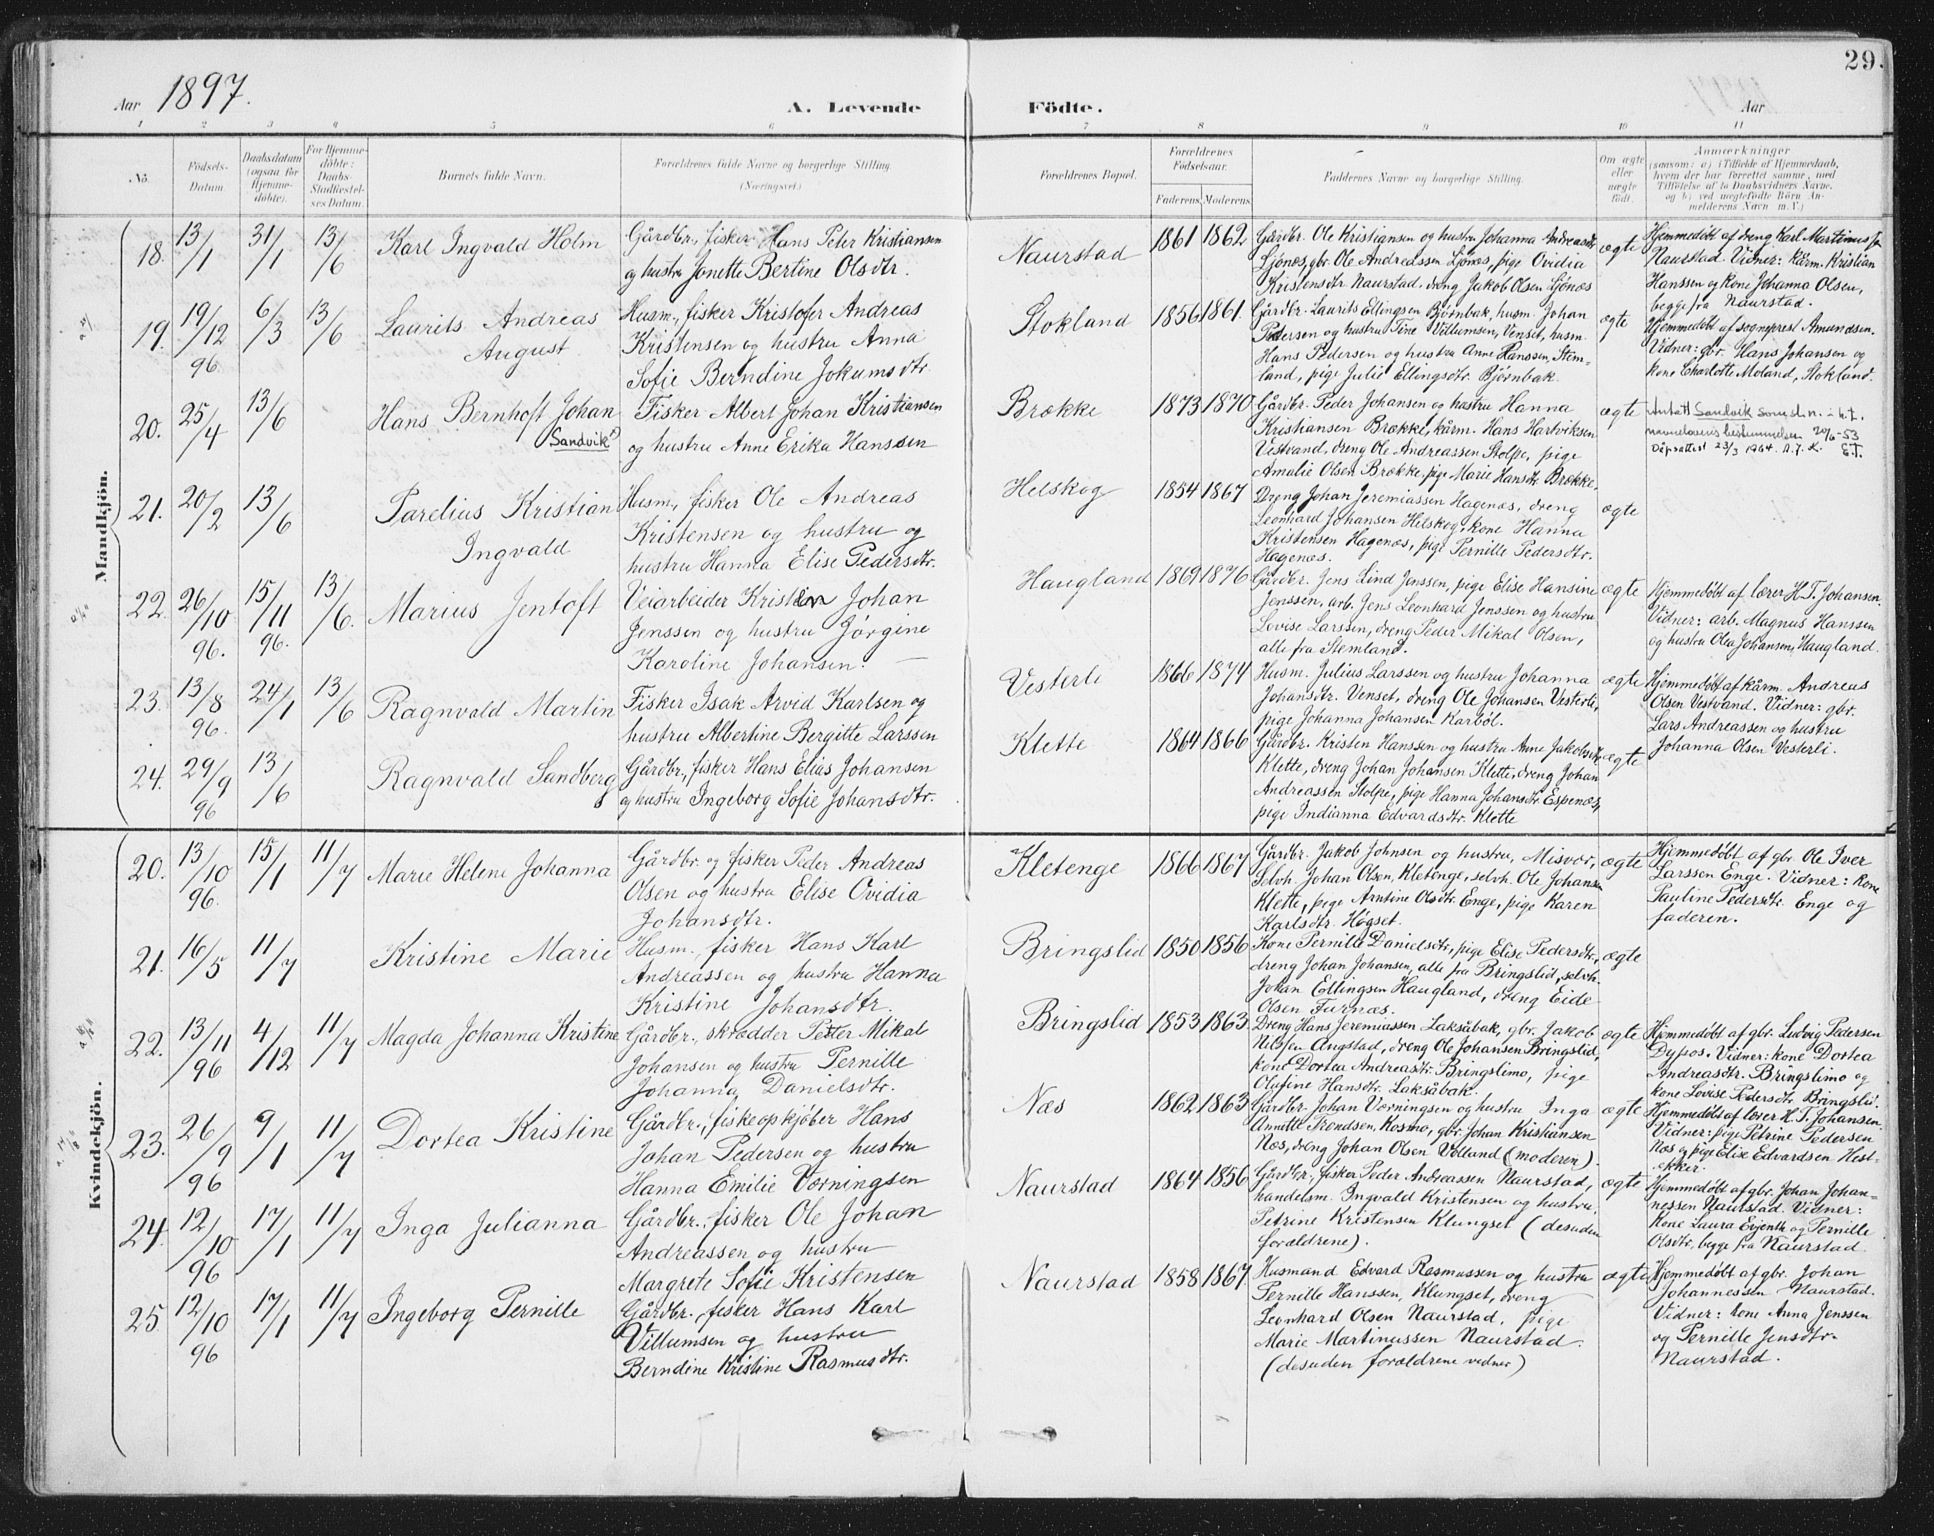 29.
Aar 1897.
A. Levende Födte.
Aar
1 2 3 4 5 6 7 8 9 10 11
No.
Födsels-
Datum.
Daabsdatum
(ogsaa for
Hjemme-
døbte).
For Hjemme-
døbte:
Daabs-
Stadfæstel-
ses Datum.
Barnets fulde Navn.
Forældrenes fulde Navne og borgerlige Stilling.
(Næringsvei.)
Forældrenes Bopæl.
Forældrenes
Födselsaar.
Faderens. Moderens.
Faddernes Navne og borgerlige Stilling.
Om ægte
eller
uægte
født.
Anmærkninger
(saasom: a) i Tilfælde af Hjemmedaab,
hvem der har forrettet samme, med
Tilföielse af to Daabsvidners Navne,
og b) ved uegtefödte Börn An-
melderens Navn m. V.)
Mandkjön.
18. 13/1 31/1 13/6
Karl Ingvald Holm
Gårdbr., fisker Hans Peter Kristiansen
og hustru Jonette Bertine Olsdtr.
Naurstad
1861 1862
Gårdbr. Ole Kristiansen og hustru Johanna Andreasdtr
Ljönes, gbr. Ole Andreassen Ljönes, pige Ovidia
Kristensdtr Naurstad, dreng Jakob Olsen Ljönes
ægte
Hjemmedøbt af dreng Karl Martinus
Naurstad. Vidner: kårm. Kristian
Hanssen og kone Johanna Olsen,
begge fra Naurstad.
19. 19/12 96 6/3 13/6
Laurits Andreas
August
Husm., fisker Kristofer Andreas
Kristensen og hustru Anna
Sofie Berndine Jokumsdtr
Stokland
1856 1861.
Gårdbr. Laurits Ellingsen Bjørnbak, husm. Johan
Pedersen og hustru Tine Villumsen, Venset, husm.
Hans Pedersen og hustru Anne Hanssen, Stem-
land, pige Julie Ellingsdtr. Bjørnbak.
ægte
Hjemmedøbt af sogneprest Amundsen.
Vidner: gbr. Hans Johansen og
kone Charlotte Moland, Stokland.
20. 25/4 13/6
Hans Bernhoft Johan
Sandvik
Fisker Albert Johan Kristiansen
og hustru Anne Erika Hanssen
Brække
1873 1870
Gårdbr. Peder Johansen og hustru Hanna
Kristiansen Brække, kårm. Hans Hartviksen
Vestvand, dreng Ole Andreassen Stolpe, pige
Amalie Olsen Brække, pige Marie Hansdtr Brække.
ægte
Antatt Sandvik som sl.n. i h.t.
navnelovens bestemmelser 20/6-53
Dåpsattest 23/3 1964 A.J.K. E.T.
21. 20/2 13/6
Parelius Kristian
Ingvald
Husm., fisker Ole Andreas
Kristensen og hustru og
hustru Hanna Elise Pedersdtr.
Helskog
1854 1867
Dreng Johan Jeremiassen Hagenæs, dreng
Leonhard Johansen Helskog, kone Hanna
Kristensen Hagenæs, pige Pernille Pedersdtr.
Hagenæs.
ægte
22. 26/10 96. 15/11 96. 13/6.
Marius Jentoft
Veiarbeider Kristen Johan
Jenssen og hustru Jørgine
Karoline Johansen.
Haugland
1869 1876
Gårdbr. Jens Lind Jenssen, pige Elise Hansine
Jenssen, arb. Jens Leonhard Jenssen og hustru
Lovise Larssen, dreng Peder Mikal Olsen,
alle fra Stemland.
ægte
Hjemmedøbt af lærer H.T. Johansen.
Vidner: arb. Magnus Hanssen
og hustru Olea Johansen, Haugland.
23. 13/8 96. 24/1 13/6
Ragnvald Martin
Fisker Isak Arvid Karlsen og
hustru Albertine Bergitte Larssen
Vesterli
1866 1874
Husm. Julius Larssen og hustru Johanna
Johansdtr. Venset, dreng Ole Johansen Vesterli,
pige Johanna Johansen Karbøl.
ægte
Hjemmedøbt af kårm. Andreas
Olsen Vestvand. Vidner: gbr.
Lars Andreassen og hustru
Johanna Olsen Vesterli.
24. 29/9 96 13/6
Ragnvald Sundberg
Gårdbr., fisker Hans Elias Johansen
og hustru Ingeborg Sofie Johansdtr.
Klette
1864 1866
Gårdbr. Kristen Hanssen og hustru Anne Jakobsdtr
Klette, dreng Johan Johansen Klette, dreng Johan
Andreassen Stolpe, pige Hanna Johansdtr. Espenæs,
pige Indianna Edvardsdtr. Klette
ægte
Kvindekjön.
20. 13/10 96. 15/1 11/7
Marie Helene Johanna
Gårdbr. og fisker Peder Andreas
Olsen og hustru Elise Ovidia
Johansdtr.
Kletenge
1866 1867
Gårdbr. Jakob Johnsen og hustru, Misvær,
Selvh. Johan Olsen, Kletenge, selvh. Ole Johansen
Klette, pige Arntine Olsdtr. Enge, pige Karen
Karlsdtr. Høgset.
ægte
Hjemmedøbt af gbr. Ole Iver
Larssen Enge. Vidner: kone
Pauline Pedersdtr. Enge og
faderen.
21. 16/5 11/7
Kristine Marie
Husm., fisker Hans Karl
Andreassen og hustru Hanna
Kristine Johansdtr.
Bringslid
1850 1856
Kone Pernille Danielsdtr, pige Elise Pedersdtr,
dreng Johan Johansen, alle fra Bringslid, selvh.
Johan Ellingsen Haugland, dreng Eide
Olsen Furnæs.
ægte
22. 13/11 96 4/12 11/7
Magda Johanna Kristine
Gårdbr., skrædder Peter Mikal
Johansen og hustru Pernille
Johanna Danielsdtr.
Bringslid
1853 1863.
Dreng Hans Jeremiassen Laksåbak, gbr. Jakob
Nilsen Angstad, dreng Ole Johansen Bringslid,
kone Dortea Andreasdtr Bringslimo, pige
Olufine Hansdtr. Laksåbak.
ægte
Hjemmedøbt af gbr. Ludvig Pedersen
Dypos. Vidner: kone Dortea
Andreasdtr. Bringslimo og
kone Lovise Pedersdtr. Bringslid.
23. 26/9 96 9/1 11/7
Dortea Kristine
Gårdbr., fiskeopkjøber Hans
Johan Pedersen og hustru
Hanna Emilie Vørningsen
Næs
1862 1863
Gårdbr. Johan Vørningsen og hustru Inga
Annette Trondsen, Kosmo, gbr. Johan Kristiansen
Næs, dreng Johan Olsen Volland (moderen).
ægte
Hjemmedøbt af lærer H.T. Johansen.
Vidner: pige Petrine Pedersen
Næs og pige Elise Edvardsen Hest-
ækker.
24. 12/10 96 17/1 11/7
Inga Julianna
Gårdbr., fisker Ole Johan
Andreassen og hustru
Margrete Sofie Kristensen
Naurstad
1864 1856
Gårdbr., fisker Peder Andreassen Naurstad,
handelsm. Ingvald Kristensen og hustru,
Petrine Kristensen Klungset (desuden
forældrene).
ægte
Hjemmedøbt af gbr. Johan Johan-
nessen Naurstad. Vidner:
Kone Laura Evjenth og Pernille
Olsdtr, begge fra Naurstad.
25. 12/10 96 17/1 11/7
Ingeborg Pernille
Gårdbr., fisker Hans Karl
Villumsen og hustru
Berndine Kristine Rasmusdtr.
Naurstad
1858 1867.
Husmand Edvard Rasmussen og hustru
Pernille Hanssen, Klungset, dreng
Leonhard Olsen Naurstad, pige
Marie Martinussen Naurstad.
(desuden forældrene vedner)
ægte
Hjemmedøbt af gbr. Johan
Johannessen Naurstad.
Vidner: kone Anna Jenssen
og Pernille Jensdtr.
Naurstad.